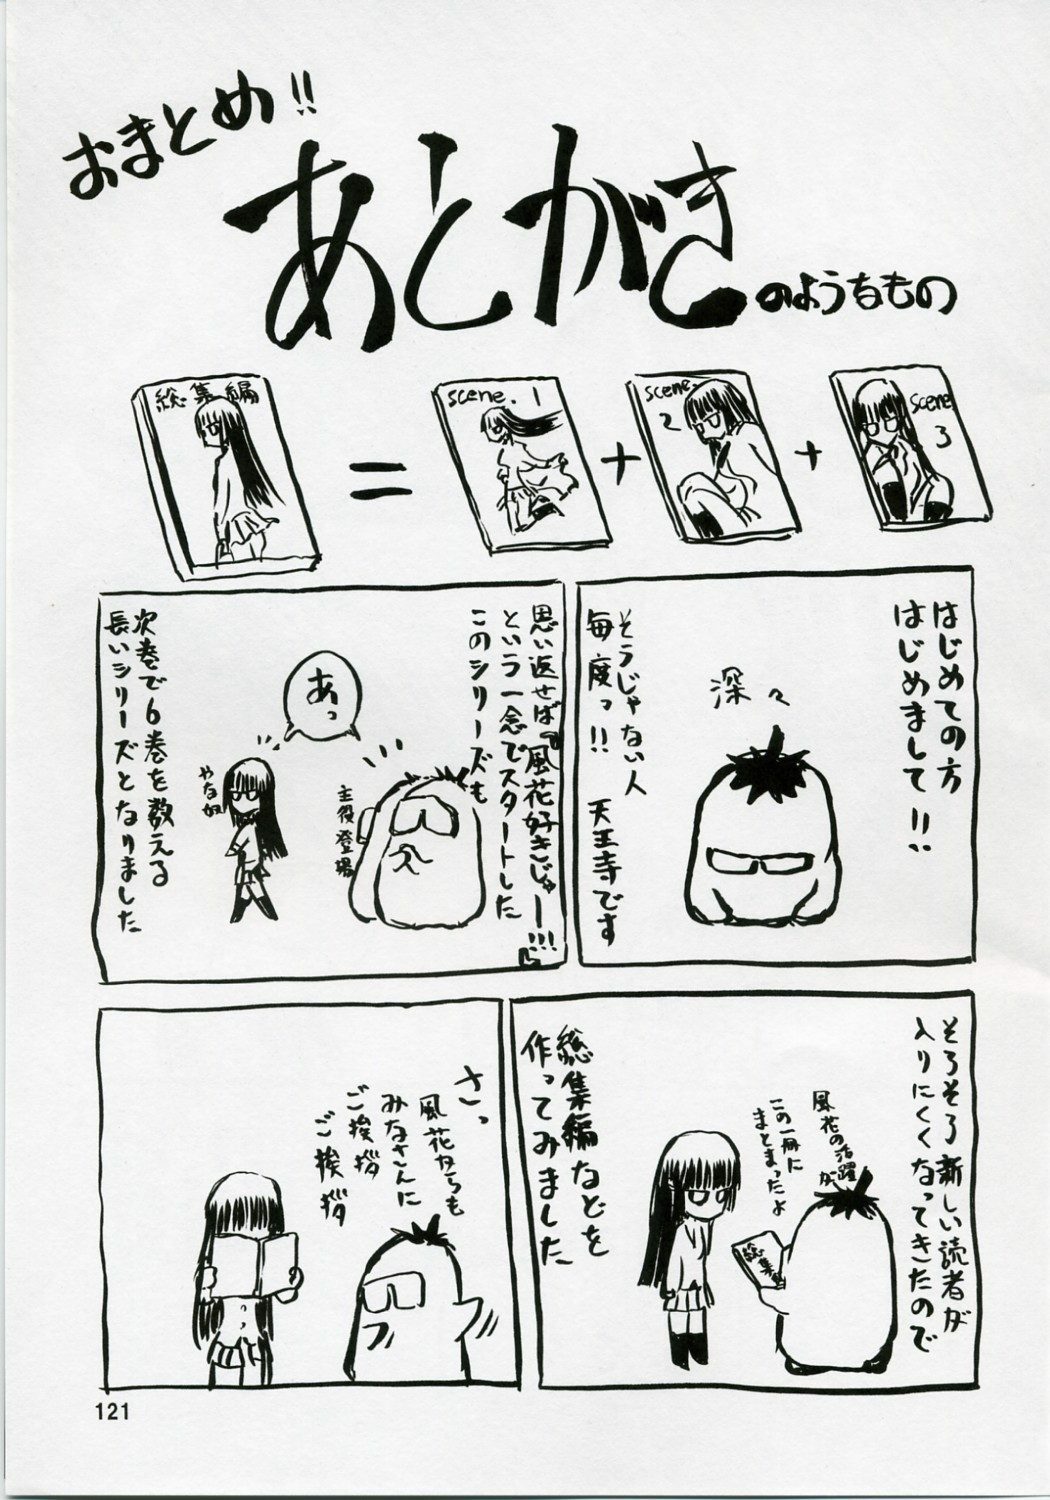 おまとめ!!
あとがき
のようなもの
総集編
=
scene. 1
+
scene. 2
+
scene. 3
はじめての方
はじめまして!!
深々
そうじゃない人
毎度っ!! 天王寺です
思い返せば『風花好きじゃー!!!』
という一念でスタートした
このシリーズも
あっ
主役登場
やなやつ
次巻で6巻を数える
長いシリーズとなりました
そろそろ新しい読者が
入りにくくなってきたので
風花の活躍が
この一冊に
まとまったよ
総集編
総集編などを
作ってみました
さっ
風花からも
みなさんに
ご挨拶
ご挨拶
121